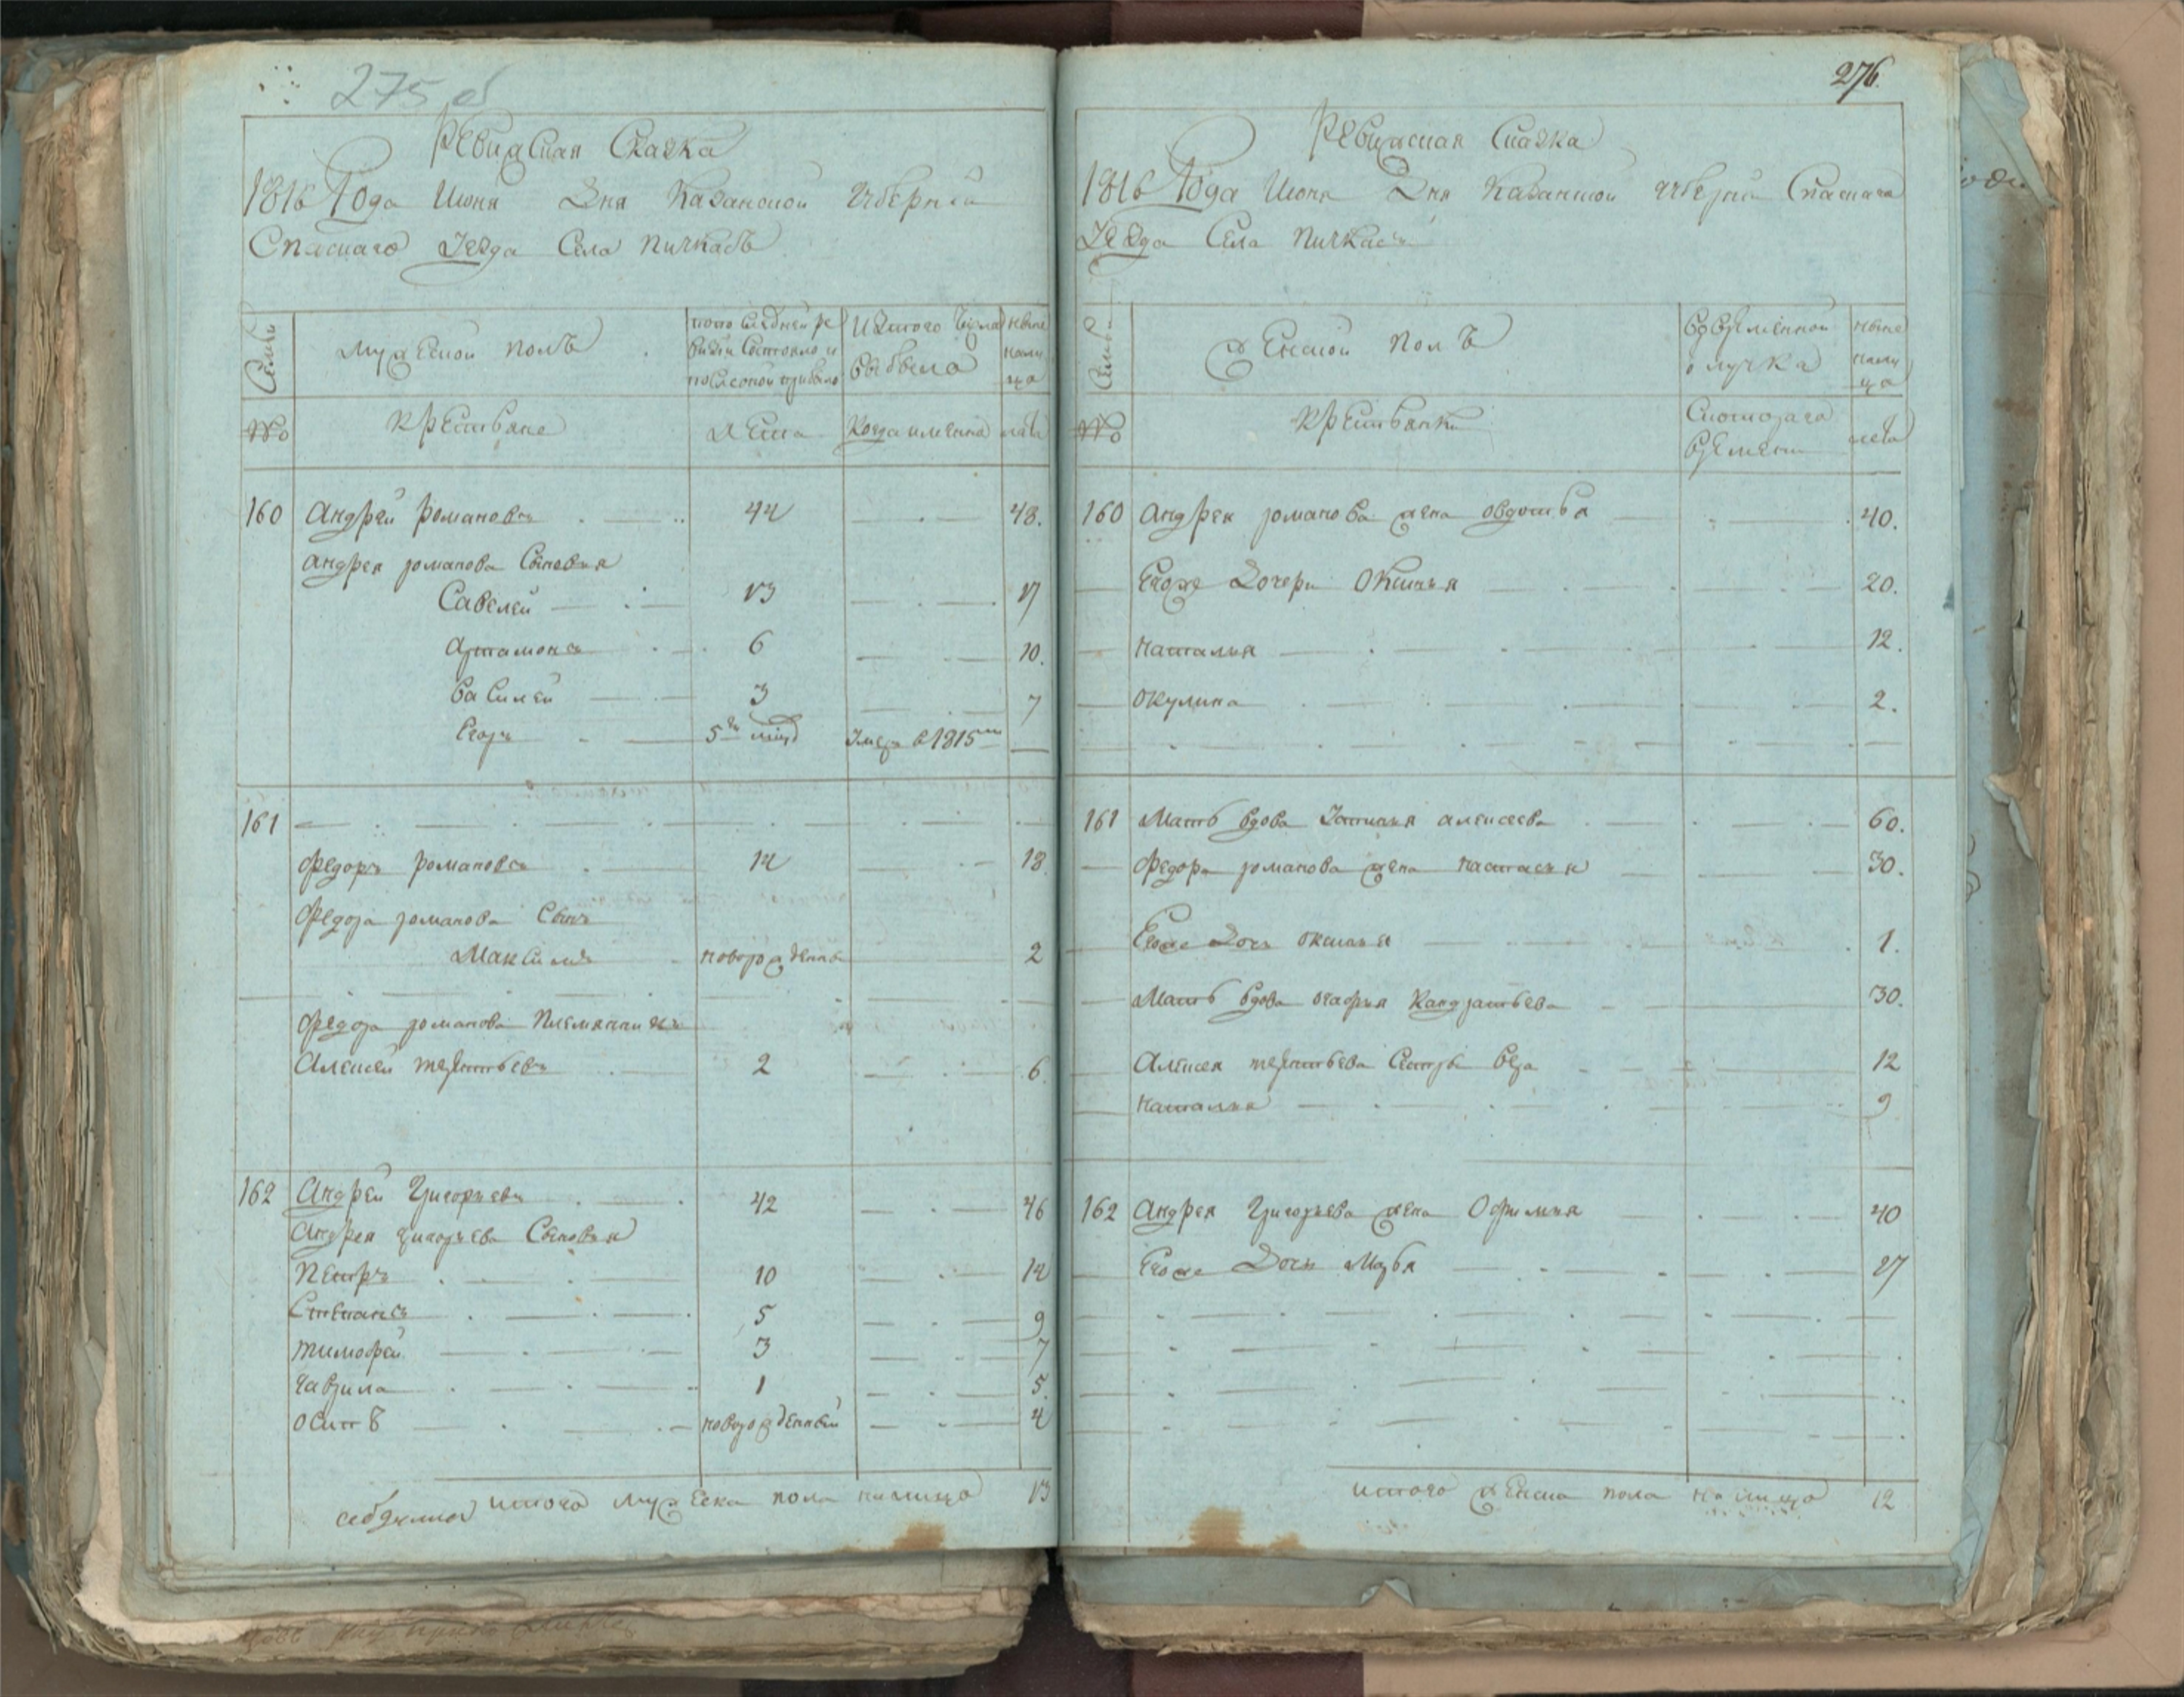 275 об
Ревижская Сказка
1816 Года Июня Дня Казанской губернии
Спаскаго Уезда Села Пичкасъ
Семьи
мужеской полъ
попоследней ре
визии состояло и
послеоной прибыло
Изтого числа
выбыло
ныне
нали
цо
№
крестьяне
лета
Когда имянно
лета
160 Андрей романовъ 44 48.
андрея романова Сыновья
Савелей 13 17
артамонъ 6 10.
Василей 3 7
Егоръ 5ти мѣд Умеръ в 1815м
161
Федоръ романовъ 14 18
Федора романова Сынъ
Максимъ новорожденны 2
Федора романова племянникъ
Алексей терентьевъ 2 6.
162 Андрей Григорьевъ 42 46
Андрея григорьева Сыновья
Петръ 10 14
Степанъ 5 9
тимофей 3 7
гаврила 1 5.
осипъ новорожденный 4
итого мужеска пола налицо 13
276.
Ревижская Сказка
1816 Года Июня Дня Казанской губернии Спаскаго
Уезда Села Пичкасъ
Семьи
Женской полъ
Во временной
отлучка
ныне
нали
цо
№
крестьянки
Скоторага
времени
лета
160 андрея романова жена овдотья 40.
Егоже Дочери Оксинья 20.
наталья 12.
окулина 2.
161 Мать вдова Татиана алексеева 60.
Федора романова жена настасья 30.
Егоже Дочь оксинья 1.
Мать вдова огафья Кандратьева 30.
Алексея терентьева Сестры вера 12
наталья 9
162 андрея Григорьева жена Офимия 40
Егоже Дочь Марья 17
итого женска пола налицо 12